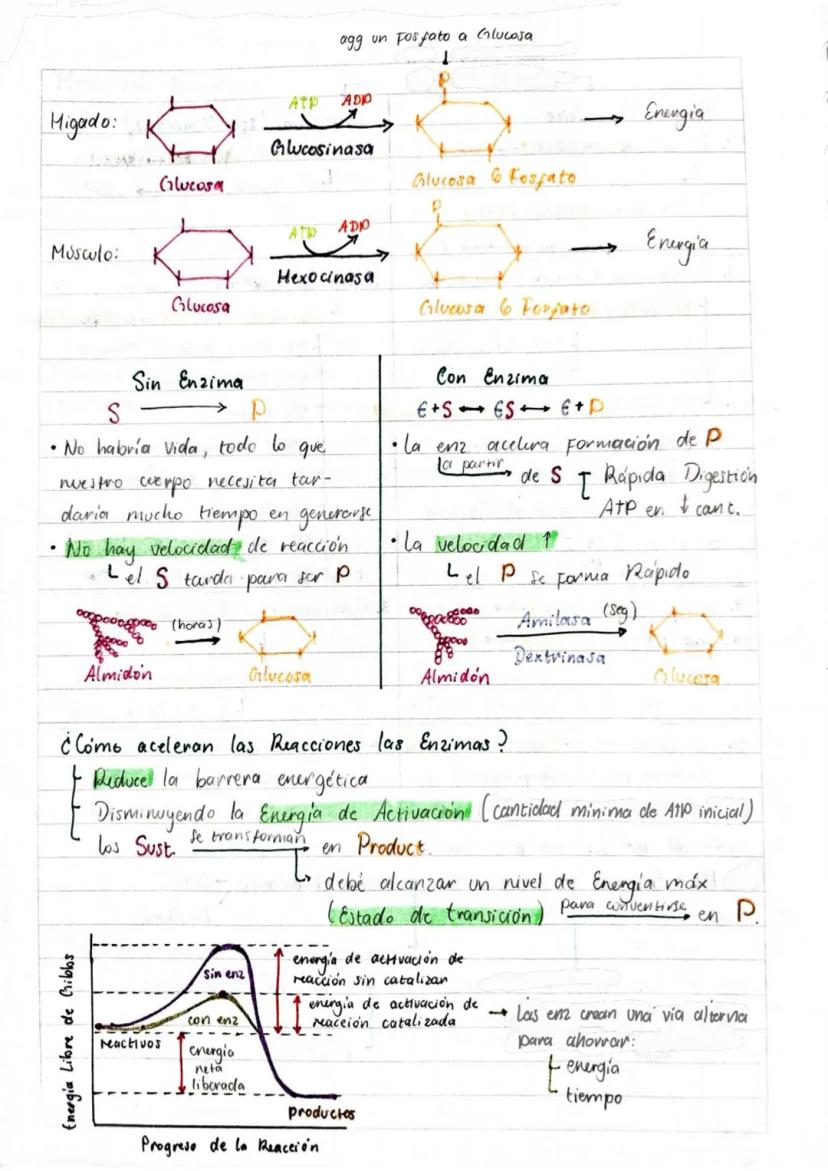 agg un Fosfato a Glucosa
P
Higado:
ATP ADP
Glucosinasa
Energía
Glucosa
Glucosa 6 Fosfato
P
Músculo:
ATP ADP
Hexocinasa
Energía
Glucosa
Glucosa 6 Fosfato
Sin Enzima
S → P
• No habría vida, todo lo que
nuestro cuerpo necesita tar-
daría mucho tiempo en generarse
• No hay velocidad de reacción
el S tarda para ser P
(horas)
Almidón
Glucosa
Con Enzima
E+S ↔ ES ↔ E+P
• la enz acelera formación de P
a partir de S Rápida Digestión
ATP en ↓ cant.
• la velocidad ↑
el P se forma Rápido
Amilasa (seg)
Dextrinasa
Almidón
Glucosa
¿Cómo aceleran las Reacciones las Enzimas?
Reduce la barrera energética
Disminuyendo la Energía de Activación (cantidad mínima de ATP inicial)
los Sust. se transforman en Product.
debé alcanzar un nivel de Energía máx
(Estado de transición) para convertirse en P.
Energía Libre de Gibbs
sin enz
con enz
reactivos
energía
neta
liberada
productos
Progreso de la Reacción
energía de activación de
reacción sin catalizar
energía de activación de
reacción catalizada
→ Las enz crean una vía alterna
para ahorrar:
energía
tiempo